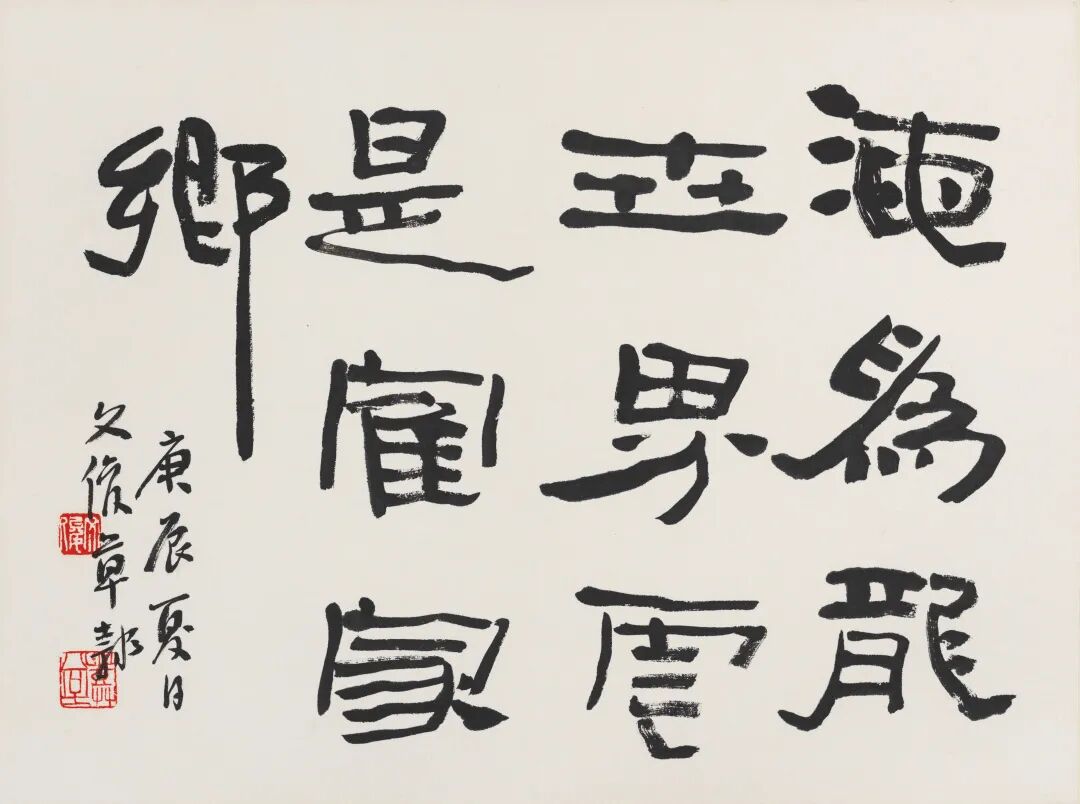 海為龍
世界雲
是鶴家
鄉
庚辰夏日
文俊草報